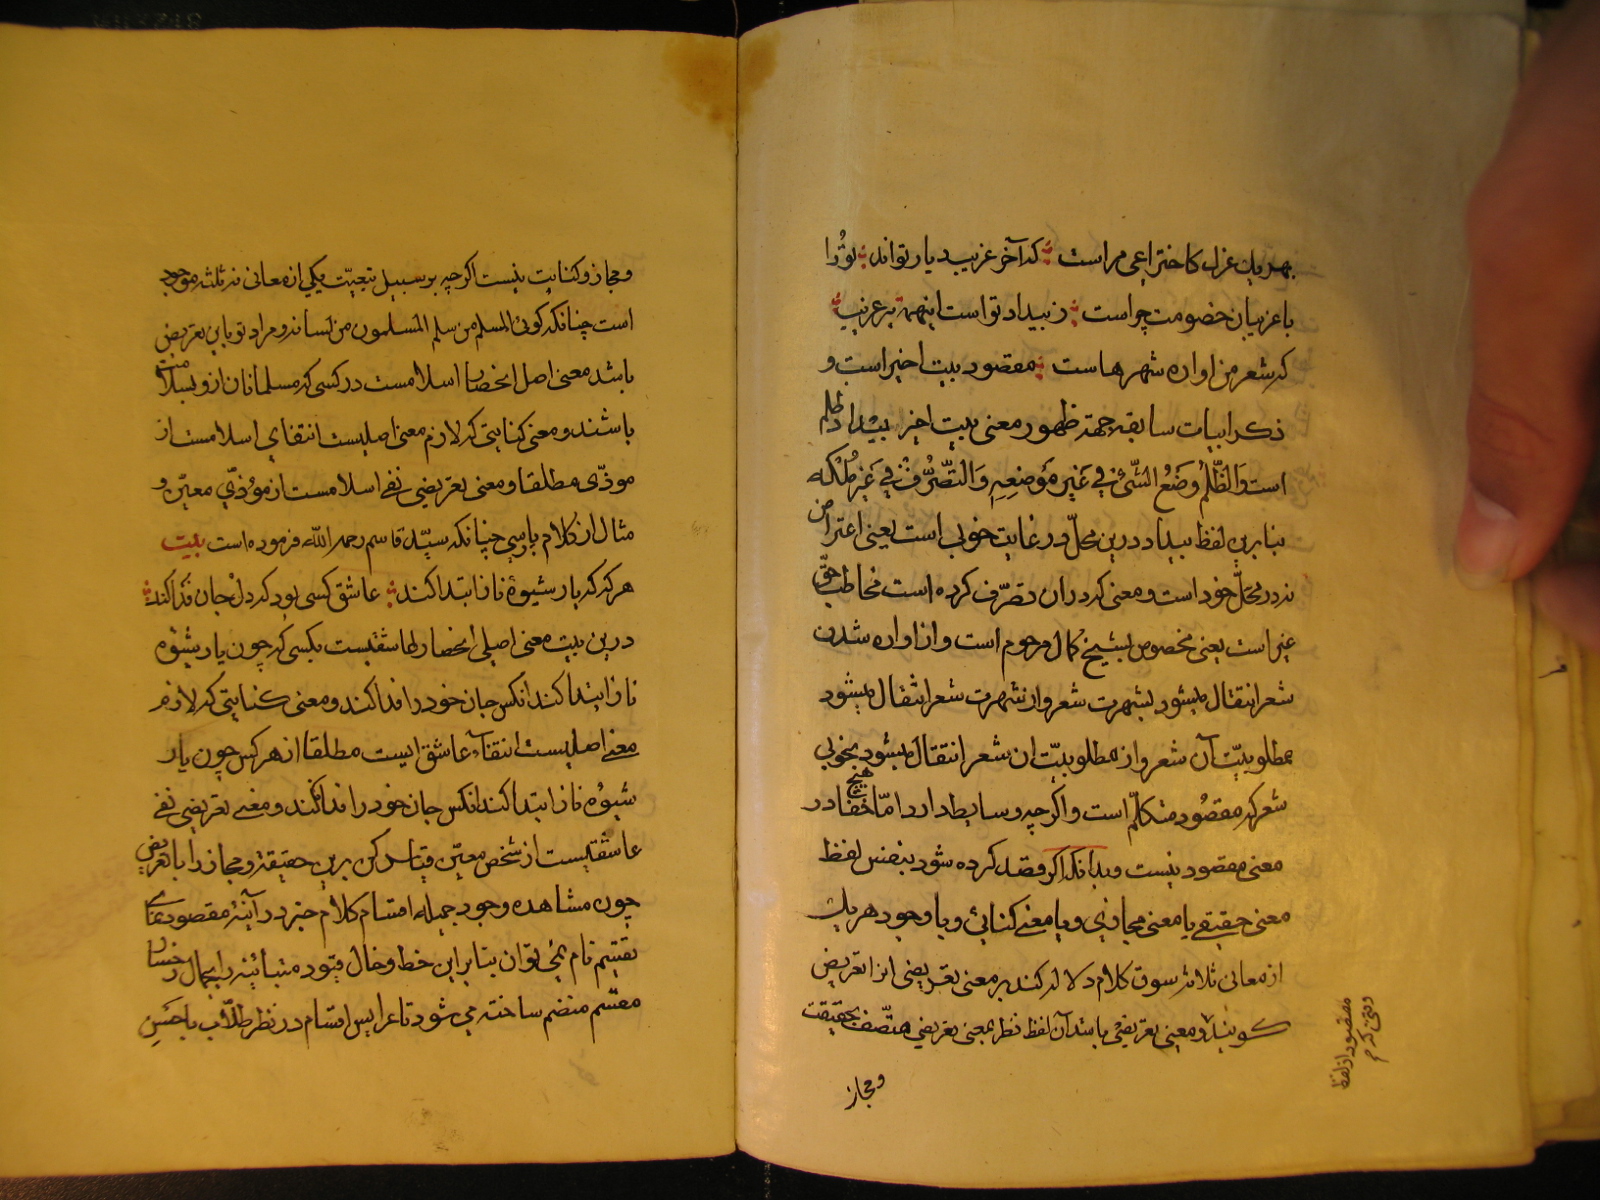 بهر یك غزل کاختراعی مراست که آخر غریب دیار تواند تو را
با غریبان خصومت چراست ز بیداد تو است اینهمه بر غریب
که شعر من اواره شهرهاست مقصود بیت اخیر است و
ذکر ابیات سابقه جهة ظهور معنی بیت اخیر بیداد ظلم
است وَالظُّلْمُ وَضْعُ الشَّیْءِ فِي غَيرِ مَوْضِعِهِ وَالتَّصَرُّفُ فِي غَيرِ مُلْکِه
بنا برین لفظ بیداد درین محلّ در غایت خوبی است یعنی اعتراض
نه در محلّ خود است و معنی که دران تصرّف کرده است مخاطب حقّ
غیر است یعنی مخصوص بشیخ کمال مرحوم است و از اواره شدن
شعر انتقال میشود بشهرت شعر و از شهرت شعر انتقال میشود
بمطلوبیّت آن شعر و از مطلوبیّت ان شعر انتقال میشود بخوبی
شعر که مقصُود متکلّم است و اکرچه وسایط دارد امّا هیچ خفا در
معنی مقصود نیست و بدانکه اکر قصد کرده شود بنفس لفظ
معنی حقیقے یا معنی مجازي و یا معنے کنائي و با وجود هر یك
از معانی ثلاثه سوق کلام دلالت کند بر معنی تعریضی انرا تعریض
کویند و معنی تعریضی باشد آن لفظ نظر بمعنی تعریضی متّصف بحقیقت
و مجاز
مقصود از لفظ
و مجاز و کنایت نیست اکرچه بر سبیل تبعیّت یکي از معانی ثلثه موجود
است چنانکه کوئی المسلم من سلم المسلمون من لسانه و مراد تو باین تعریض
باشد معنی اصل انحصار اسلامست در کسی که مسلمانان ازو بسلامت
باشند و معنی کنایتی که لازم معنی اصلیست انتفاي اسلامست از
موذّی مطلقا و معنی تعریضی نفے اسلامست از موُذّي معیّن و
مثال از کلام پارسي چنانکه سیّد قاسم رحمه اللّه فرموده است بیت
هر که که یار شیوهٔ ناز ابتدا کند عاشق کسی بود که دل جان فدا کند
درین بیت معنی اصلي انحصار عاشقیست بکسی که چون یار شیوْه
ناز ابتدا کند انکس جان خود را فدا کند و معنی کنایتی که لازم
معنے اصلیست انتفآء عاشق ایست مطلقا از هر کس چون یار
شیوُه ناز ابتدا کند انکس جان خود را فدا نکند و معنے تعریضی نفے
عاشقیست از شخص معیّن قیاس کن برین حقیقة و مجاز را با تعریض
چون مشاهده وجود جمیله اقسام کلام خبر در آینهٔ مقصود نماے
تقسیم تام نمي توان بنا براین خط و خال قیود متباینه را بجمال رخسار
مقسّم منضم ساخته مي شود تا عرایس اقسام در نظر طلّاب باحَسَنِ